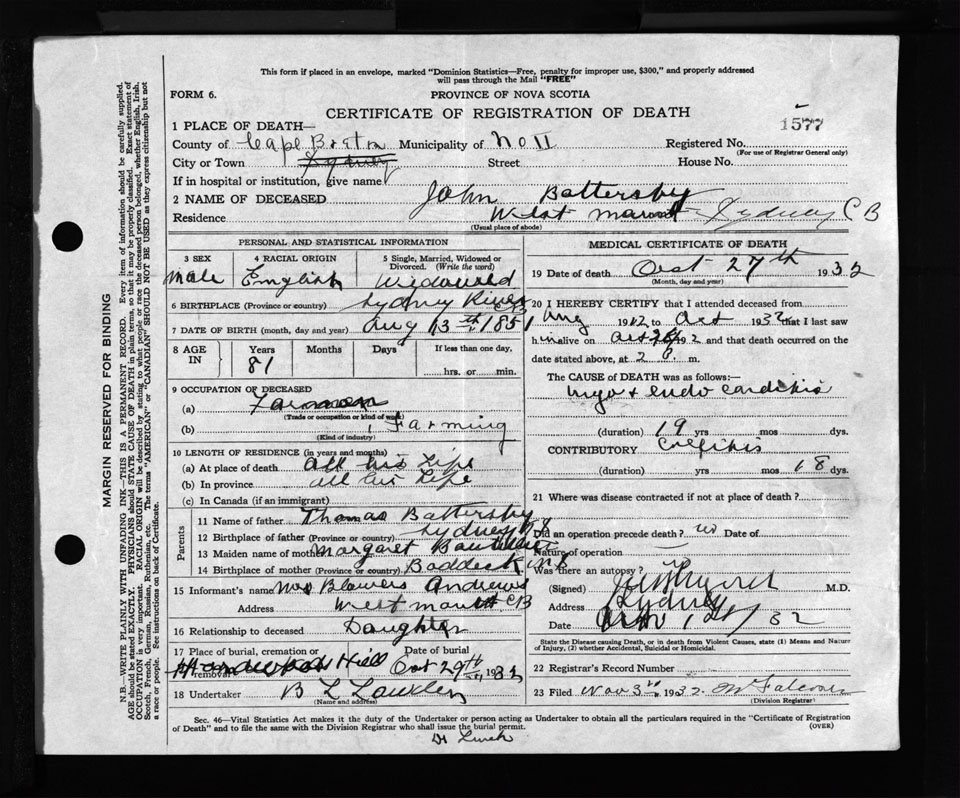 This form if placed in an envelope, marked "Dominion Statistics—Free, penalty for improper use, $300," and properly addressed
will pass through the Mail "FREE"
FORM 6.
PROVINCE OF NOVA SCOTIA
CERTIFICATE OF REGISTRATION OF DEATH
1577
1 PLACE OF DEATH—
County of Cape Breton Municipality of Registered No.
(For use of Registrar General only)
City or Town Sydney Street House No.
If in hospital or institution, give name
2 NAME OF DECEASED John Battersby
Residence West Sydney C B
(Usual place of abode)
PERSONAL AND STATISTICAL INFORMATION
3 SEX
4 RACIAL ORIGIN
5 Single, Married, Widowed or
Divorced. (Write the word)
Male English Widowed
6 BIRTHPLACE (Province or country) Sydney River CB
7 DATE OF BIRTH (month, day and year) Aug 13th 1851
8 AGE IN
Years Months Days If less than one day,
81 hrs. or min.
9 OCCUPATION OF DECEASED
(a)
(Trade or occupation or kind of work)
(b) Farming
(Kind of industry)
10 LENGTH OF RESIDENCE (in years and months)
(a) At place of death all his Life
(b) In province all his Life
(c) In Canada (if an immigrant)
Parents
11 Name of father Thomas Battersby
12 Birthplace of father (Province or country) Sydney NS
13 Maiden name of mother Margaret
14 Birthplace of mother (Province or country) Baddeck NS
15 Informant's name Mrs Blowers Andrews
Address West CB
16 Relationship to deceased Daughter
17 Place of burial, cremation or removal Date of burial
Hill Oct 29th 1932
18 Undertaker B L
(Name and address)
MEDICAL CERTIFICATE OF DEATH
19 Date of death Oct 27th 1932
(Month, day and year)
20 I HEREBY CERTIFY that I attended deceased from
Aug 1912 to Oct 1932 that I last saw
him alive on Oct 1932 and that death occurred on the
date stated above, at 2 m.
The CAUSE of DEATH was as follows:—
Myo & endo carditis
(duration) 19 yrs mos dys.
CONTRIBUTORY
(duration) yrs mos 18 dys.
21 Where was disease contracted if not at place of death?
Did an operation precede death? no Date of
Nature of operation
Was there an autopsy?
(Signed) M.D.
Address Sydney
Date 32
State the Disease causing Death, or in death from Violent Causes, state (1) Means and Nature
of Injury, (2) whether Accidental, Suicidal or Homicidal.
22 Registrar's Record Number
23 Filed Nov 3 1932.
(Division Registrar)
Sec. 46—Vital Statistics Act makes it the duty of the Undertaker or person acting as Undertaker to obtain all the particulars required in the "Certificate of Registration
of Death" and to file the same with the Division Registrar who shall issue the burial permit.
(OVER)
MARGIN RESERVED FOR BINDING
N.B.—WRITE PLAINLY WITH UNFADING INK—THIS IS A PERMANENT RECORD. Every item of information should be carefully supplied.
AGE should be stated EXACTLY. PHYSICIANS should STATE CAUSE OF DEATH in plain terms, so that it may be properly classified. Exact statement of
OCCUPATION is very important. RACIAL ORIGIN will be described by stating to what people or race the deceased person belonged, whether English, Irish,
Scotch, French, German, Russian, Ruthenian, etc. The terms "AMERICAN" or "CANADIAN" SHOULD NOT BE USED as they express citizenship but not
a race or people. See instructions on back of Certificate.